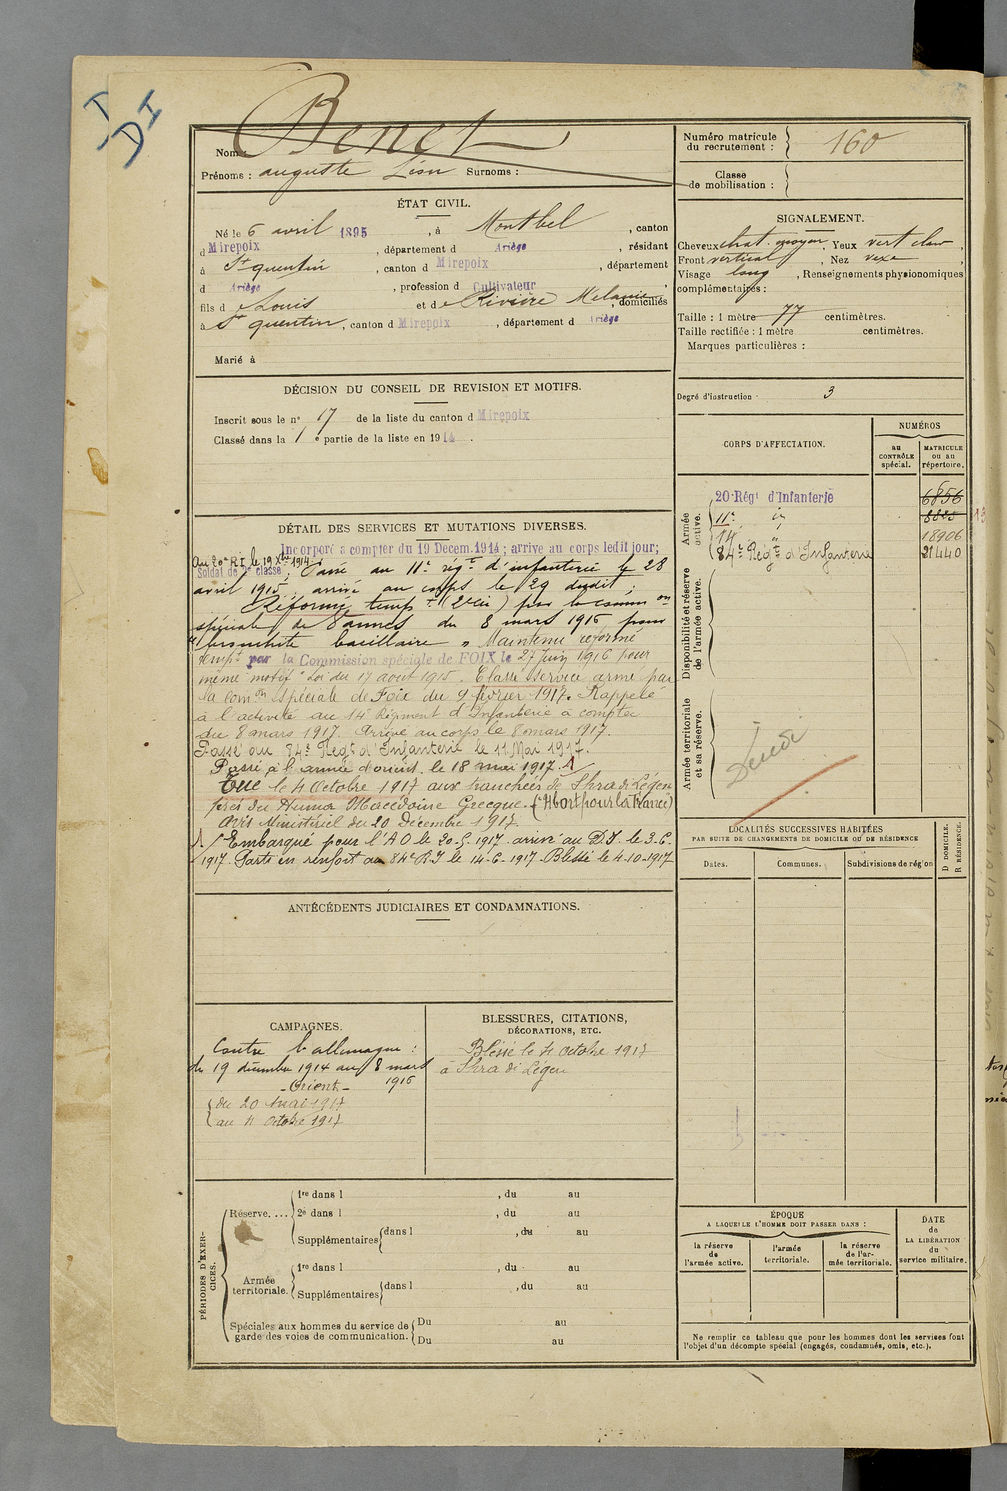 I
DI
Nom : Benet
Prénoms : auguste Léon Surnoms :
Numéro matricule du recrutement : 160
Classe de mobilisation :
ÉTAT CIVIL.
Né le 6 avril 1895, à Montbel, canton
d Mirepoix, département d Ariège, résidant
à St quentin, canton d Mirepoix, département
d Ariège, profession d Cultivateur,
fils d e Louis et d e Rivière Melanie, domiciliés
à St quentin, canton d Mirepoix, département d Ariège
Marié à
SIGNALEMENT.
Cheveux chat. moyen, Yeux vert clair,
Front vertical, Nez vexe,
Visage long, Renseignements physionomiques
complémentaires :
Taille : 1 mètre 77 centimètres.
Taille rectifiée : 1 mètre centimètres.
Marques particulières :
Degré d'instruction 3
DÉCISION DU CONSEIL DE REVISION ET MOTIFS.
Inscrit sous le n° 17 de la liste du canton d Mirepoix
Classé dans la 1e partie de la liste en 1914.
DÉTAIL DES SERVICES ET MUTATIONS DIVERSES.
Incorporé à compter du 19 Décem. 1914 ; arrivé au corps ledit jour ;
Au 20e RI le 19 Xbre 1914
Soldat de 2e classe ; Passé au 11e régt d'infanterie le 28
avril 1915 ; arrivé au corps le 29 dudit ;
Réformé tempre (2e cie) par la common
spéciale de Vannes du 8 mars 1916 pour
"bronchite bacillaire" Maintenu réformé
tempre par la Commission spéciale de FOIX le 27 Juin 1916 pour
même motif "Loi du 17 aout 1915. Classé service armé par
la comon spéciale de Foix du 9 février 1917. Rappelé
à l'activité au 14e Régiment d'Infanterie à compter
du 8 mars 1917. Arrivé au corps le 8 mars 1917.
Passé au 84e Régt d'Infanterie le 11 Mai 1917.
Passé à l'armée d'orient le 18 mai 1917. 1
Tué le 4 Octobre 1917 aux tranchées de Shra di Légen
près du Huma Macédoine Grecque. ("Mort pour la France")
Avis Ministériel du 20 Décembre 1917.
1/ Embarqué pour l'AO le 20-5-1917 arrivé au D.I. le 3-6-
1917. Parti en renfort au 84e R.I le 14-6-1917. Blessé le 4-10-1917
CORPS D'AFFECTATION.
NUMÉROS
au CONTRÔLE spécial.
MATRICULE OU AU répertoire.
Armée active.
20e Régt d'Infanterie 6856
11e id 8885
14e " 18906
84e Régt d'Infanterie 21440
Disponibilité et réserve de l'armée active.
Armée territoriale et sa réserve.
Décédé
ANTÉCÉDENTS JUDICIAIRES ET CONDAMNATIONS.
LOCALITÉS SUCCESSIVES HABITÉES
PAR SUITE DE CHANGEMENTS DE DOMICILE OU DE RÉSIDENCE
Dates.
Communes.
Subdivisions de région
D DOMICILE.
R RÉSIDENCE.
CAMPAGNES.
Contre l'allemagne :
du 19 décembre 1914 au 8 mars
1916
- Orient -
du 20 Mai 1917
au 4 Octobre 1917
BLESSURES, CITATIONS,
DÉCORATIONS, ETC.
Blessé le 4 Octobre 1917
à Shra di Légen
PÉRIODES D'EXERCICES.
Réserve....
1re dans l , du au
2e dans l , du au
Supplémentaires dans l , du au
Armée territoriale.
1re dans l , du au
Supplémentaires dans l , du au
Spéciales aux hommes du service de
garde des voies de communication.
Du au
Du au
ÉPOQUE
A LAQUELLE L'HOMME DOIT PASSER DANS :
la réserve de l'armée active.
l'armée territoriale.
la réserve de l'armée territoriale.
DATE
de
LA LIBÉRATION
du
service militaire.
Ne remplir ce tableau que pour les hommes dont les services font
l'objet d'un décompte spécial (engagés, condamnés, omis, etc.).